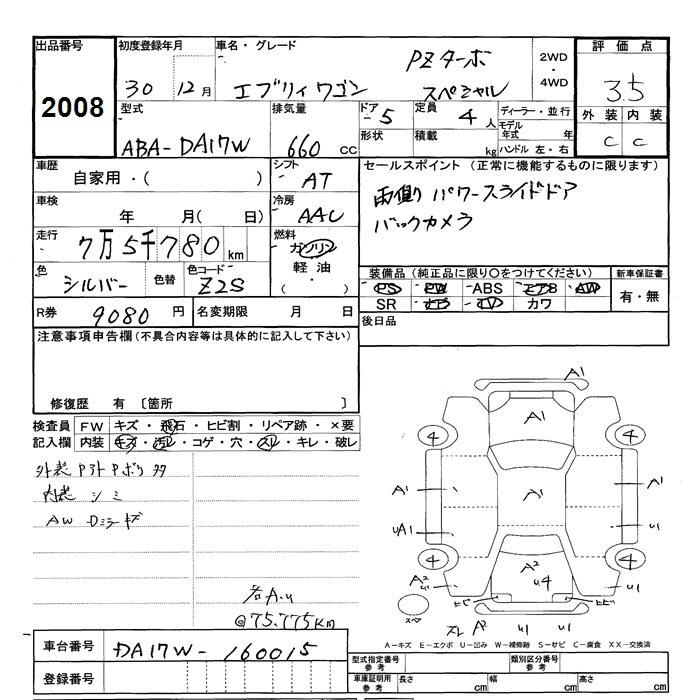 出品番号 初度登録年月 車名・グレード 評価点
2008 30 12月 エブリイワゴン PZターボ スペシャル 2WD・4WD 3.5
型式 排気量 ドア 5 定員 4人 ディーラー・並行 外装 内装
ABA-DA17W 660 CC 形状 積載 kg モデル年式 年 ハンドル 左・右 C C
車歴 自家用・( ) シフト AT セールスポイント (正常に機能するものに限ります)
車検 年 月( 日) 冷房 AAC 両側パワースライドドア
バックカメラ
走行 7万5千780km 燃料 ガソリン 軽油 ・( )
色 シルバー 色替 色コード Z2S 装備品 (純正品に限り〇をつけてください) 新車保証書
PS PW ABS エアB AW 有・無
SR ナビ TV カワ
R券 9080円 名変期限 月 日 後日品
注意事項申告欄(不具合内容等は具体的に記入して下さい)
修復歴 有 〔箇所 〕
検査員 FW キズ・飛石・ヒビ割・リペア跡・×要
記入欄 内装 キズ・汚レ・コゲ・穴・スレ・キレ・破レ
内装 シミ
AW Dミラーキズ
各A.u
@75.775Km
A1
A1
4 4
A1 A1 A1
uA1 u1
4 4
A2 u1 A2 u4 u1
ヒビ ヒビ
スペア スレ A2 u1 u1
A-キズ E-エクボ U-凹み W-補修跡 S-サビ C-腐食 XX-交換済
車台番号 DA17W-160015
登録番号
型式指定番号 参考 類別区分番号 参考
車庫証明用 参考 長さ cm 幅 cm 高さ cm